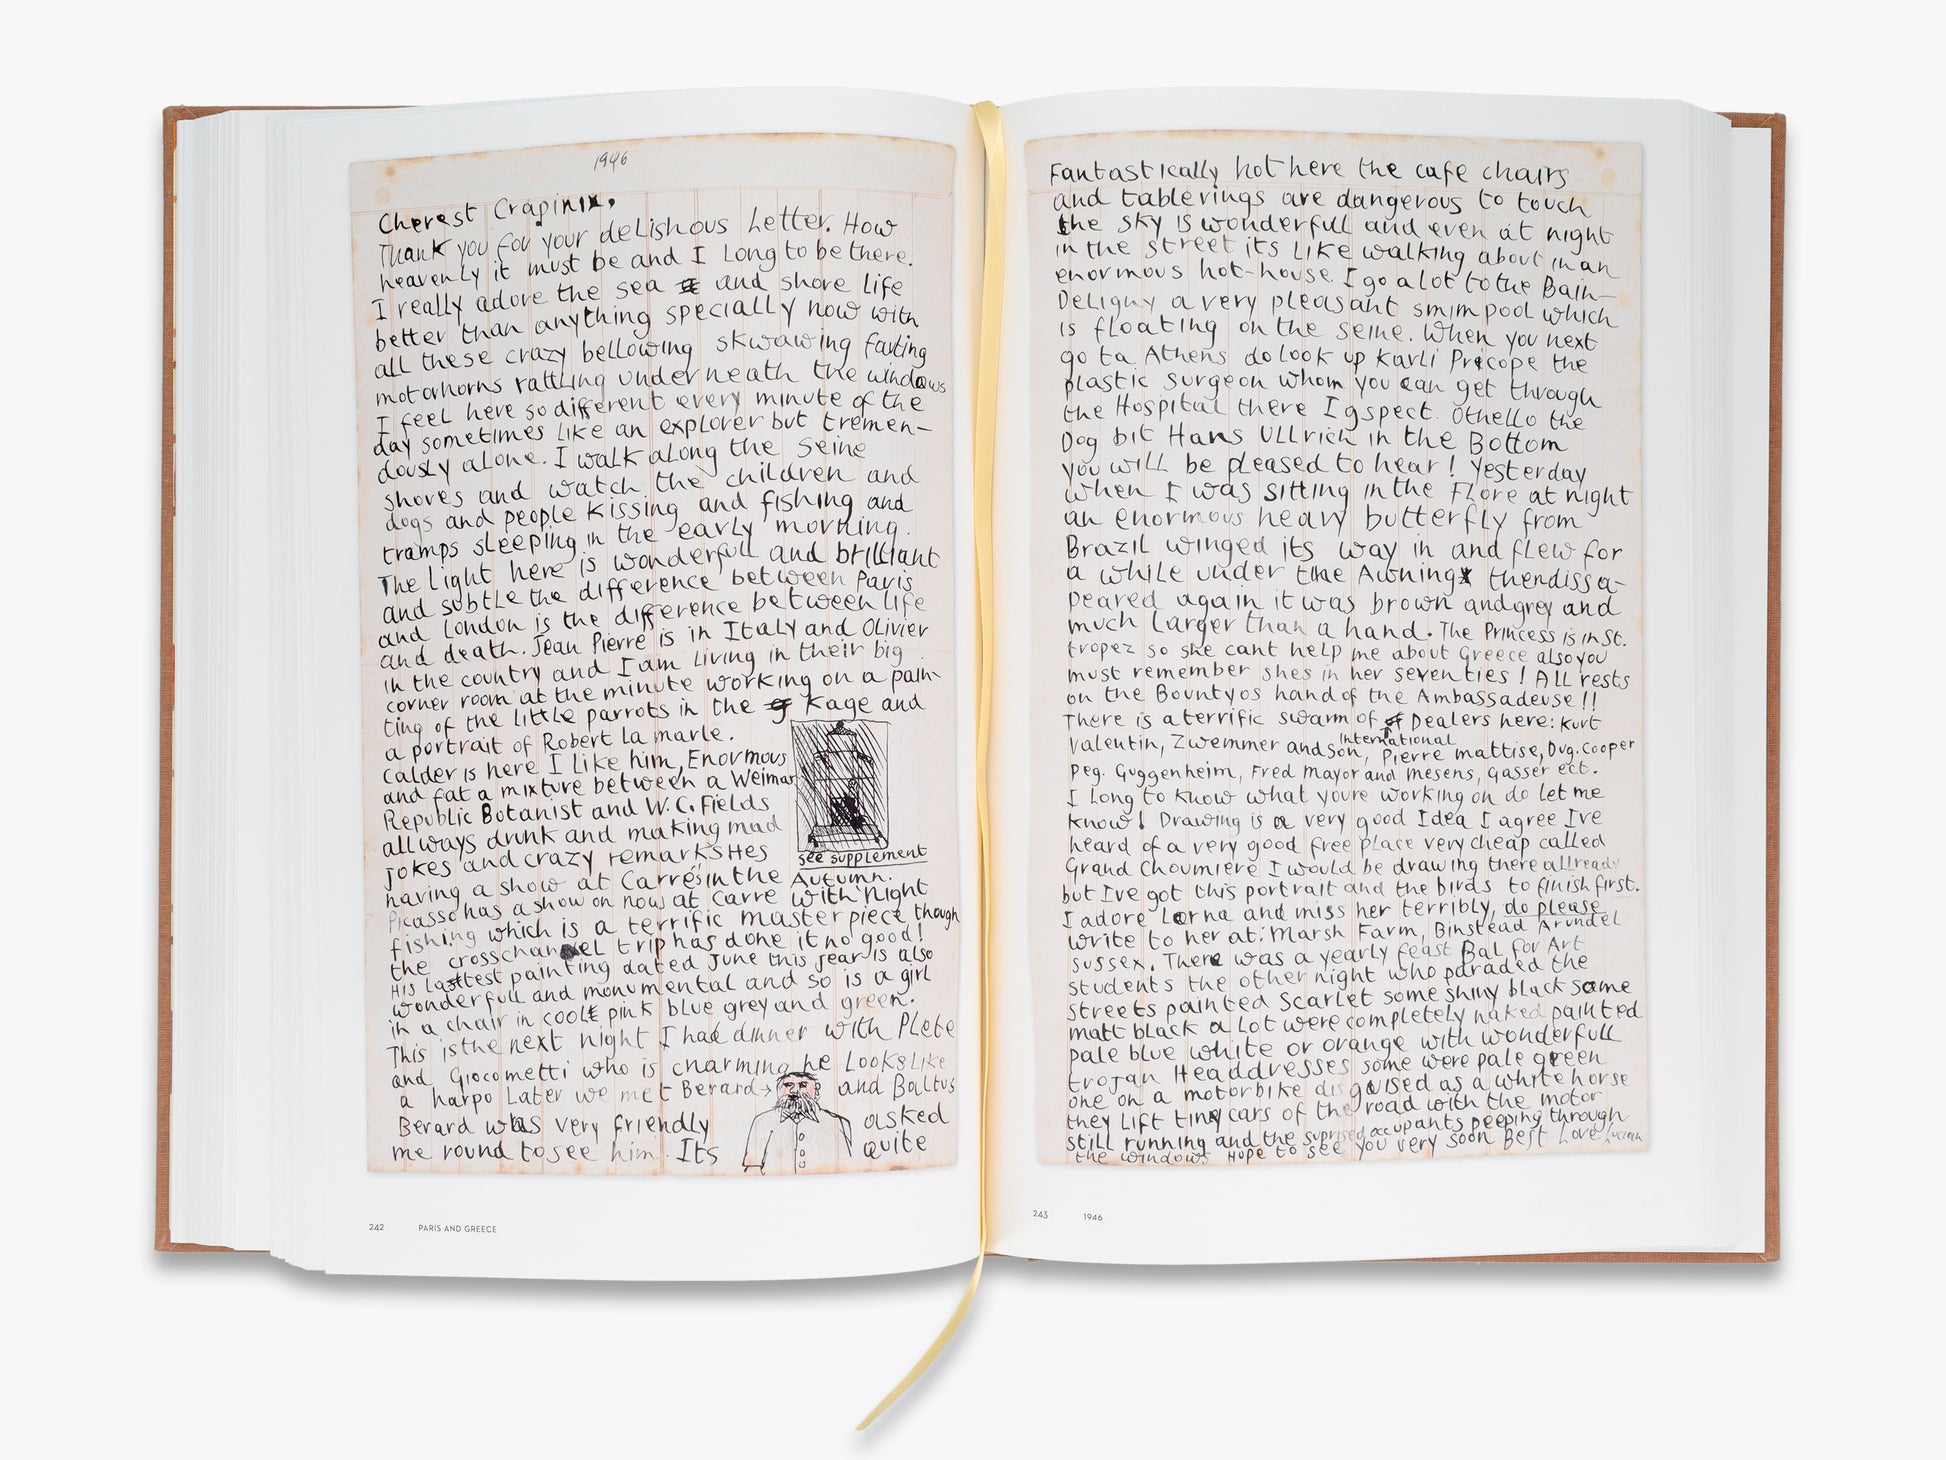 1946
Cherest Crapinix,
Thank you for your delishous Letter. How
heavenly it must be and I Long to be there.
I really adore the sea and shore life
better than anything specially now with
all these crazy bellowing skwawing farting
motorhorns rattling underneath the windows
I feel here so different every minute of the
day sometimes like an explorer but tremen-
dously alone. I walk along the Seine
shores and watch the children and
dogs and people kissing and fishing and
tramps sleeping in the early morning.
The Light here is wonderfull and brilliant
and subtle the difference between Paris
and London is the difference between life
and death. Jean Pierre is in Italy and Olivier
in the country and I am Living in their big
corner room at the minute working on a pain-
ting of the little parrots in the Kage and
a portrait of Robert La marle.
Calder is here I Like him, Enormous
and fat a mixture between a Weimar
Republic Botanist and W.C. Fields
allways drunk and making mad
jokes and crazy remarks Hes
see supplement
having a show at Carrés in the Autumn.
Picasso has a show on now at Carre with Night
fishing which is a terrific masterpiece though
the crosschannel trip has done it no good!
His lasttest painting dated June this year is also
wonderfull and monumental and so is a girl
in a chair in coole pink blue grey and green.
This is the next night I had dinner with Plete
and Giocometti who is charming he Looks Like
a harpo Later we met Berard → and Baltus
Berard was very friendly asked
me round to see him. Its quite
242 PARIS AND GREECE
Fantastically hot here the cafe chairs
and tablerings are dangerous to touch
the sky is wonderfull and even at night
in the street its Like walking about in an
enormous hot-house. I go a lot to the Bain-
Deligny a very pleasant smim pool which
is floating on the seine. When you next
go to Athens do look up Karli Pricope the
plastic surgeon whom you can get through
the Hospital there I gspect. Othello the
Dog bit Hans Ullrich in the Bottom
you will be pleased to hear! Yesterday
when I was sitting in the Flore at night
an enormous heavy butterfly from
Brazil winged its way in and flew for
a while under the Awning then dissa-
peared again it was brown and grey and
much larger than a hand. The Princess is in St.
tropez so she cant help me about Greece also you
must remember shes in her seventies! All rests
on the Bountyos hand of the Ambassadeuse!!
There is a terrific swarm of International Dealers here: Kurt
Valentin, Zwemmer and son, Pierre mattise, Dug. Cooper
Peg. Guggenheim, Fred Mayor and Mesens, Gasser ect.
I Long to know what youre working on do let me
know! Drawing is a very good Idea I agree I've
heard of a very good free place very cheap called
Grand Choumiere I would be drawing there allready
but I've got this portrait and the birds to finish first.
I adore Lorna and miss her terribly, do please
write to her at: Marsh Farm, Binstead Arundel
sussex. There was a yearly feast Bal for Art
students the other night who paraded the
streets painted Scarlet some shiny black some
matt black a lot were completely naked painted
pale blue white or orange with wonderfull
trojan Headdresses some were pale green
one on a motorbike disgused as a white horse
they Lift tiny cars of the road with the motor
still running and the suprised accupants peeping through
the windows Hope to see you very soon Best Love Lucian
243 1946